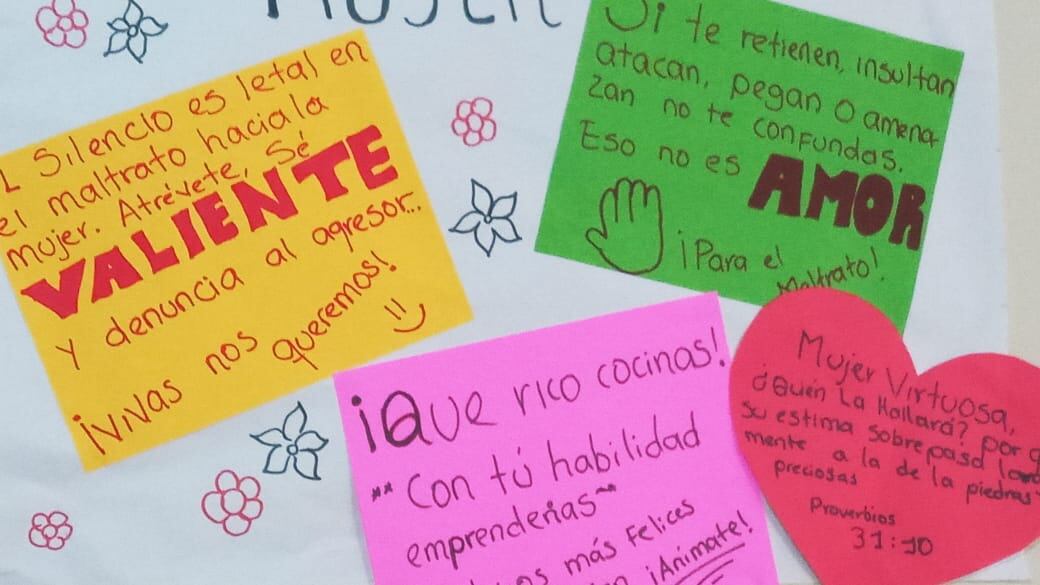 MUJER
L Silencio es letal en
el maltrato hacia la
mujer. Atrévete, Sé
VALIENTE
y denuncia al agresor...
¡VIVAS nos queremos!
Si te retienen, insultan
atacan, pegan o amena-
zan no te confundas.
Eso no es AMOR
¡Para el
Maltrato!
¡Que rico cocinas!
"Con tú habilidad
emprenderias"
más Felices
¡Animate!
Mujer Virtuosa,
¿Quén La Hallará? por q
su estima sobrepasa larga
mente a la de la piedras
preciosas
Proverbios
31:10